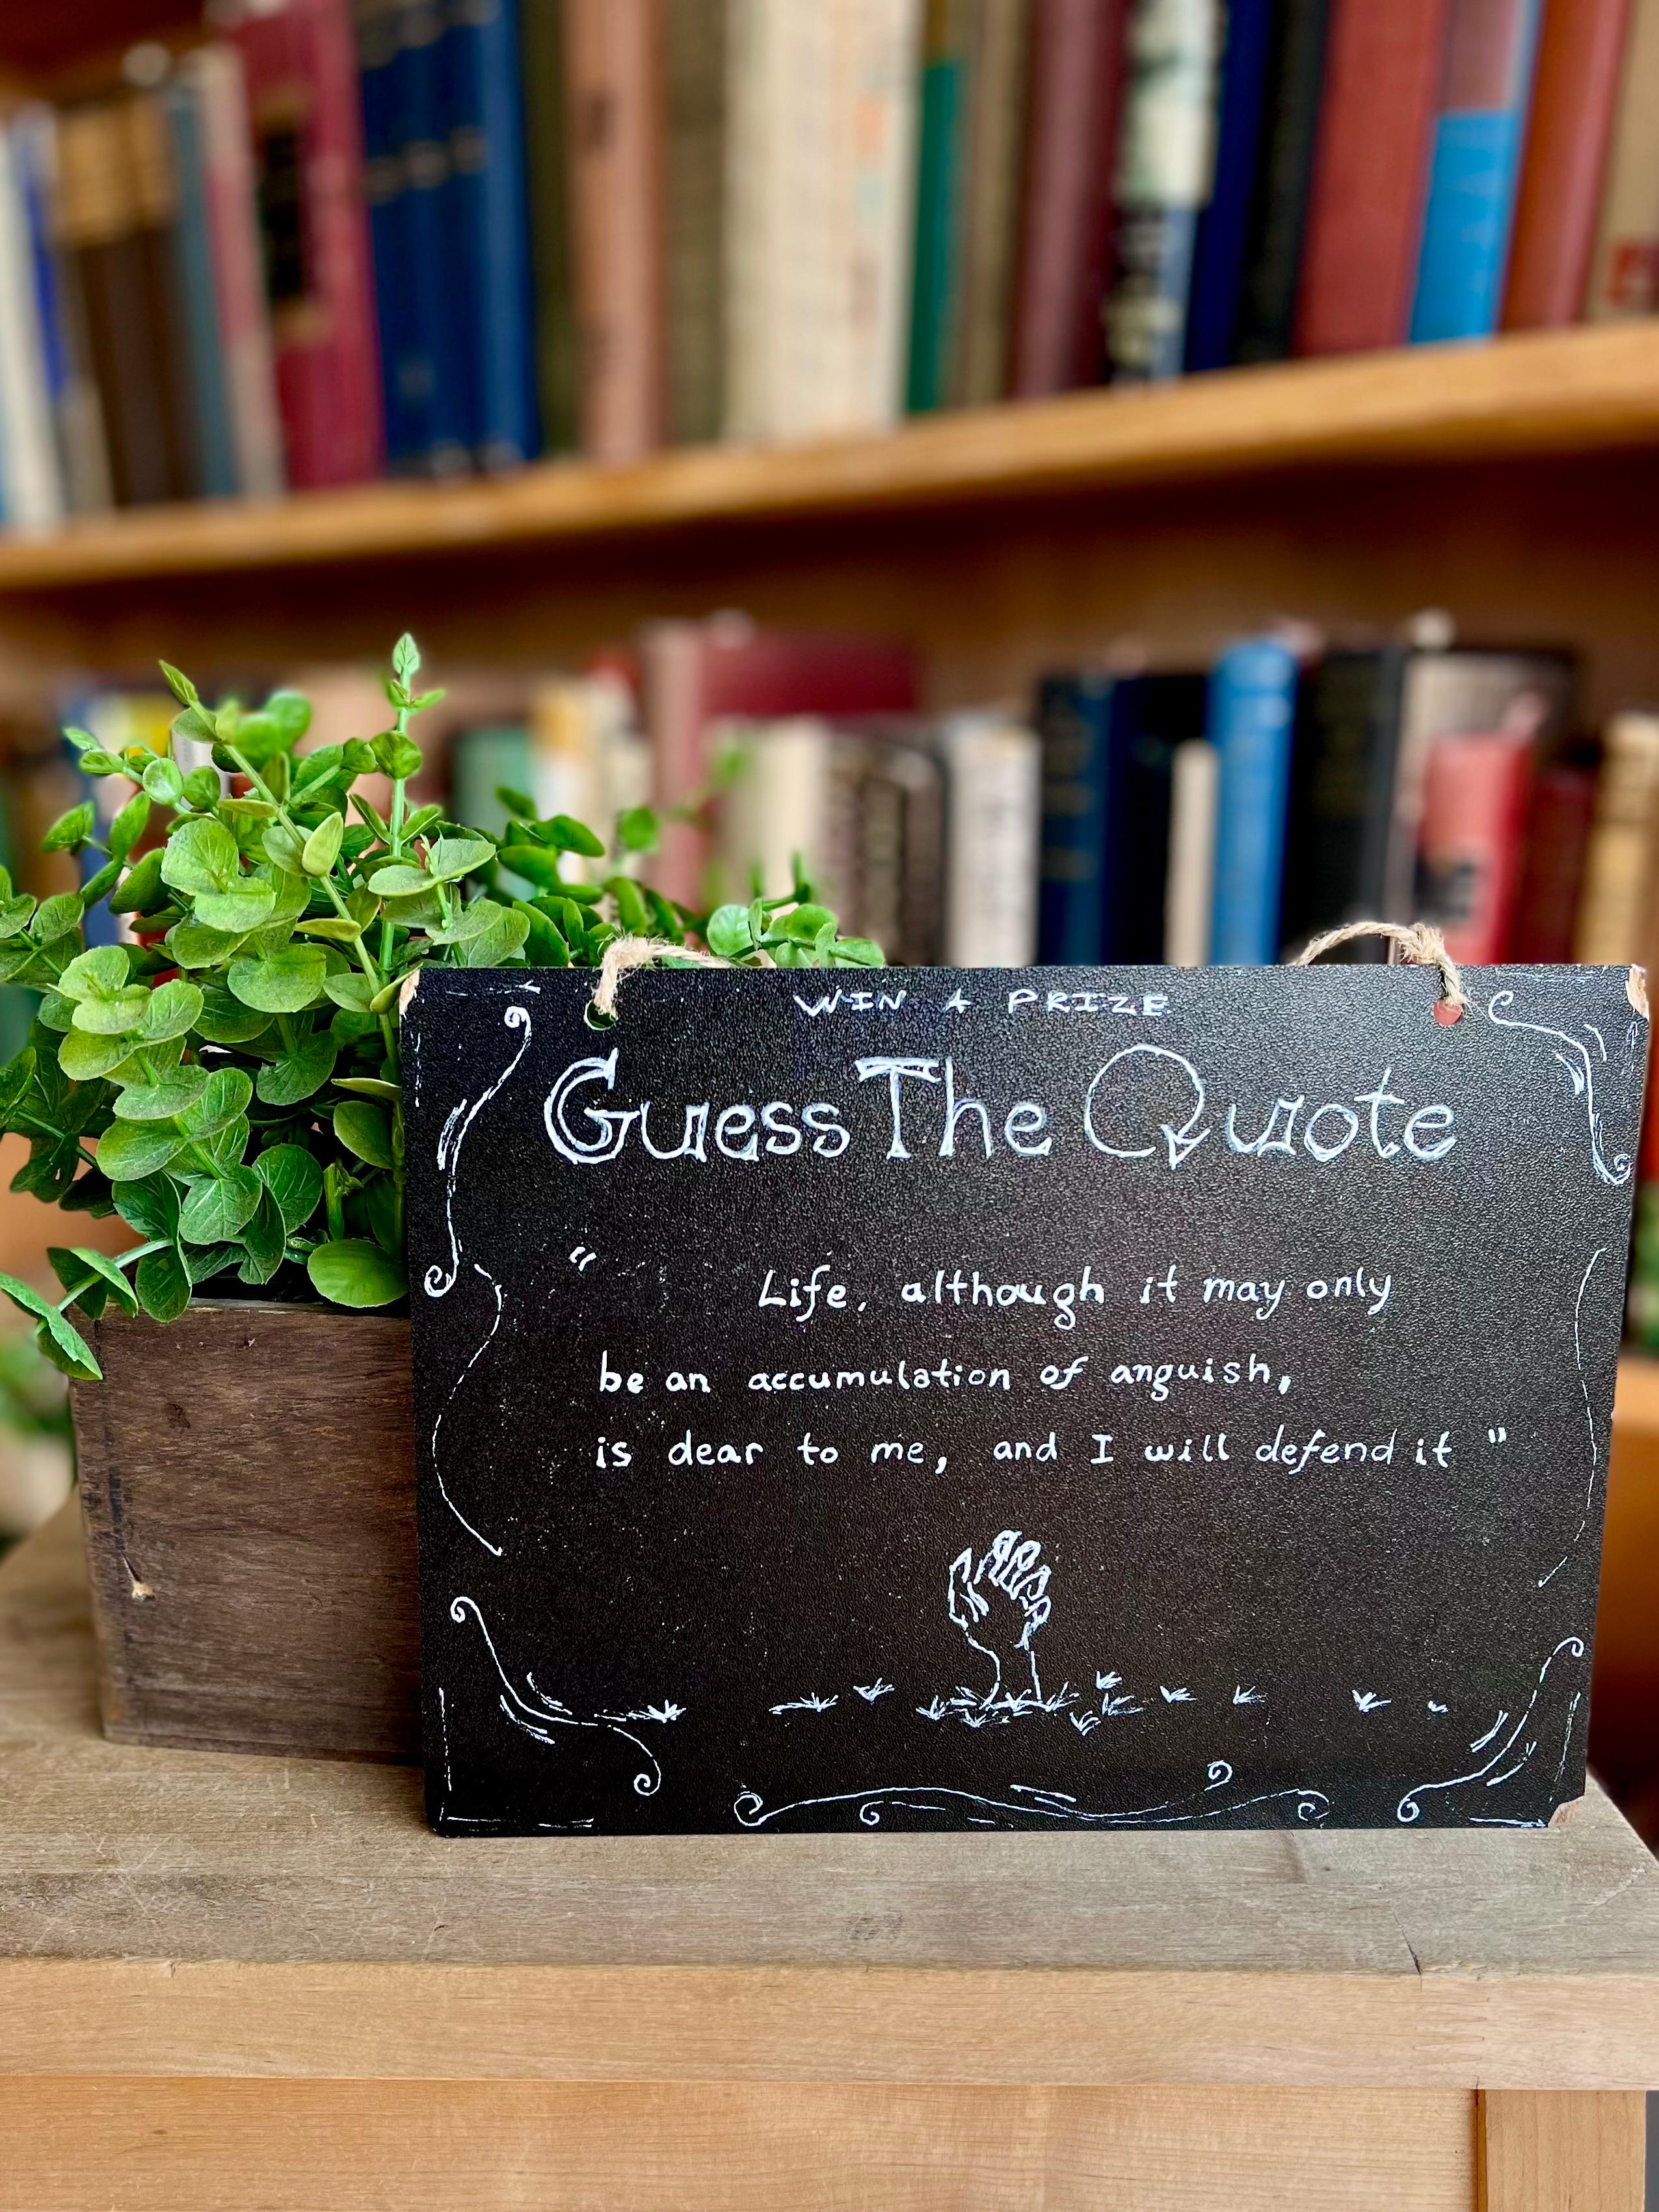 WIN A PRIZE
Guess The Quote
" Life, although it may only
be an accumulation of anguish,
is dear to me, and I will defend it "